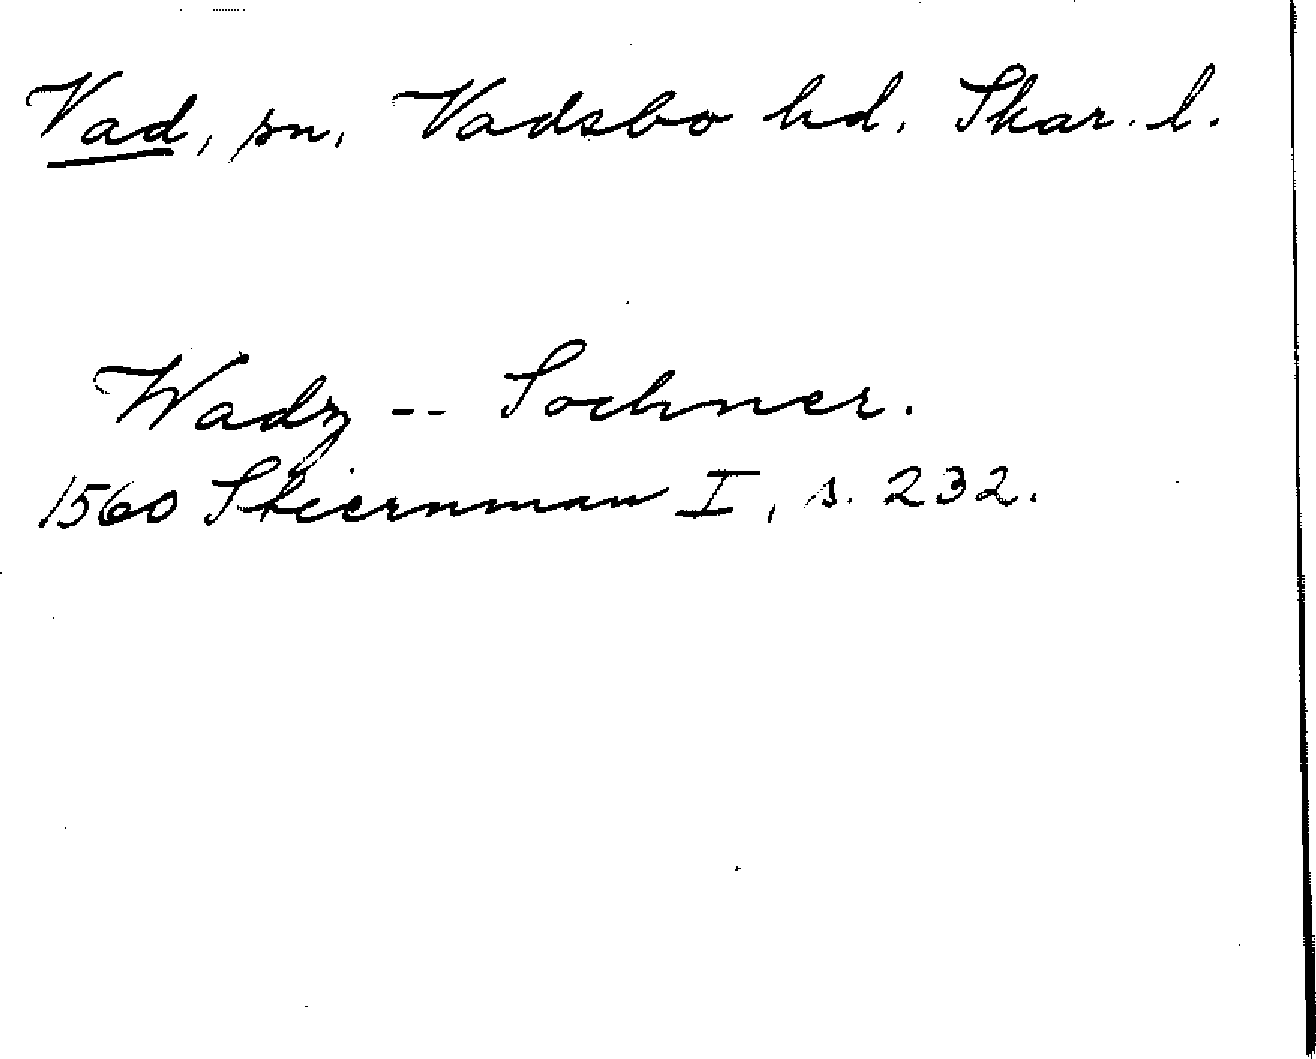 Vad, sn, Vadsbo hd. Skar. l.
Wadz -- Sochner.
1560 Stiernman I, s. 232.